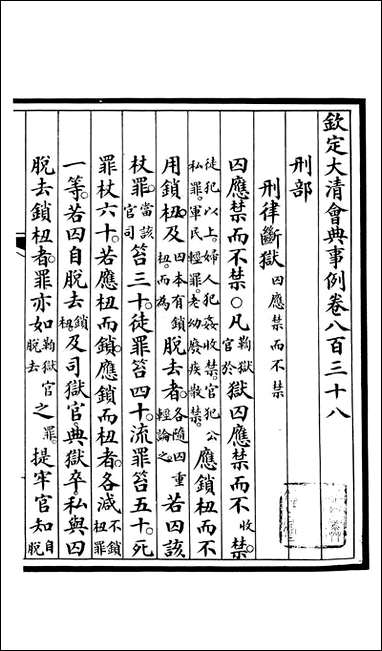 欽定大清會典事例卷八百三十八
刑部
刑律斷獄囚應禁而不禁
囚應禁而不禁○凡鞫獄官於獄囚應禁而不收禁
徒犯以上。婦人犯姦收禁。官犯公私罪。軍民輕罪。老幼廢疾散禁。應鎖杻而不
用鎖杻。及囚本有鎖杻。而爲脫去者。各隨囚重輕論之。若囚該
杖罪。當該官司笞三十。徒罪笞四十。流罪笞五十。死
罪杖六十。若應杻而鎖。應鎖而杻者。各減不鎖杻罪
一等。若囚自脫去鎖杻。及司獄官典獄卒。私與囚
脫去鎖杻者。罪亦如鞫獄官脫去之罪。提牢官知自脫